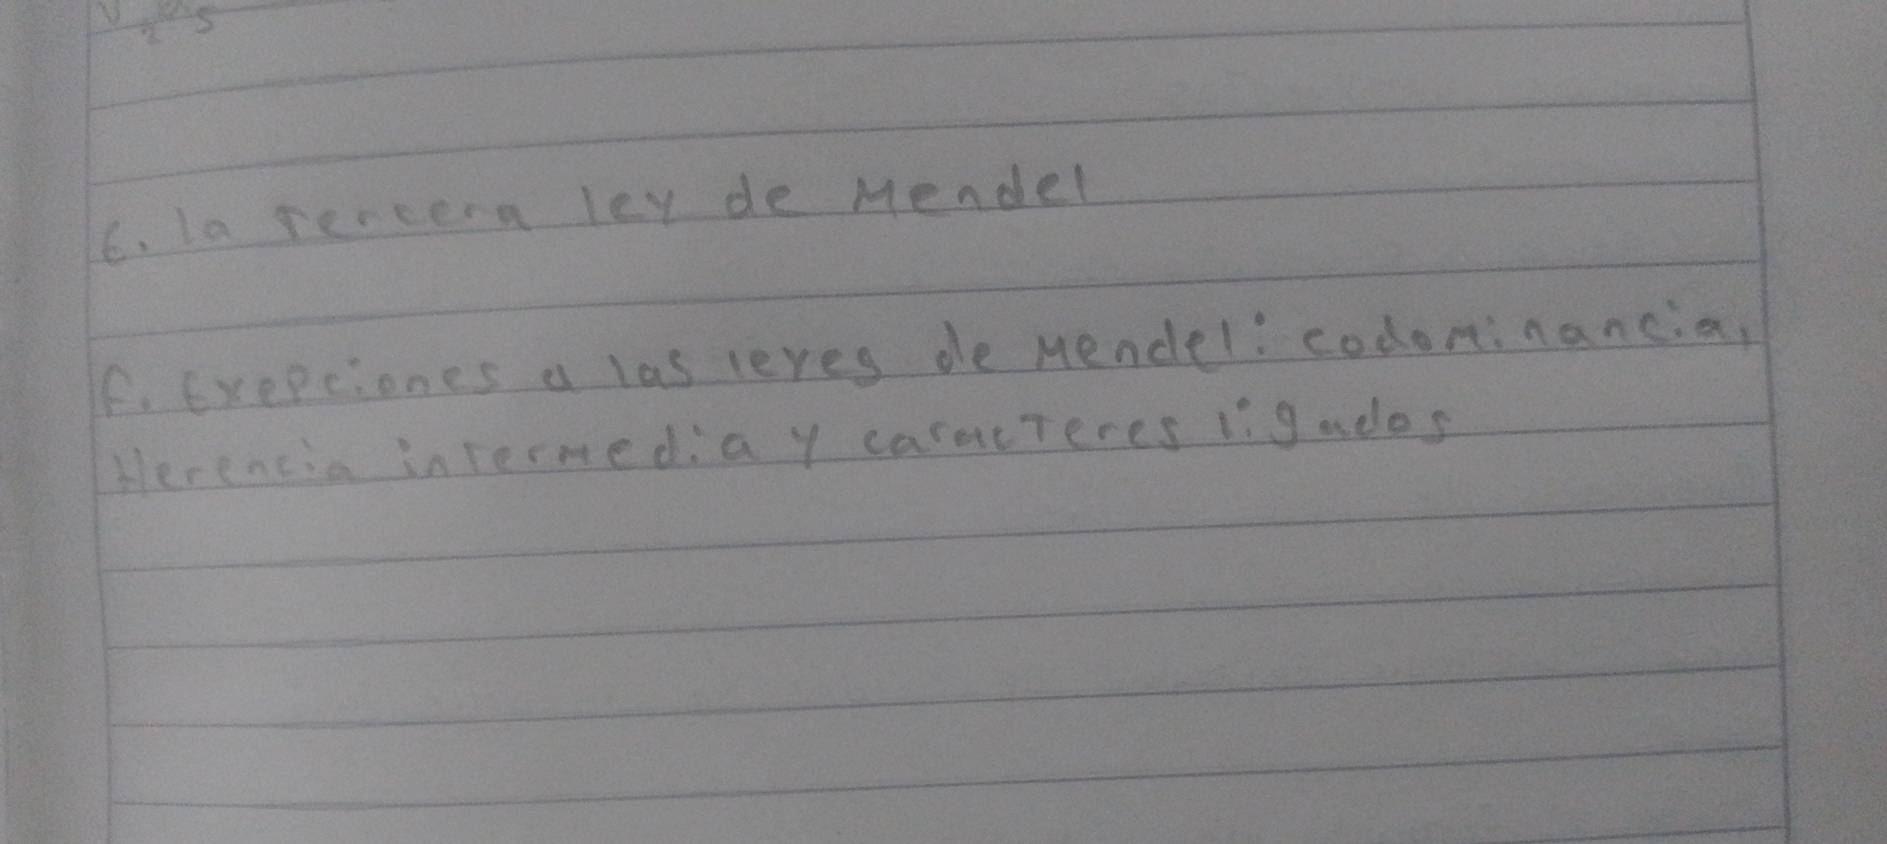 E. la Tercera ley de Mendel
F. Exepciones a las leyes de Mendel: codominancia,
Herencia intermedia y caracteres ligados